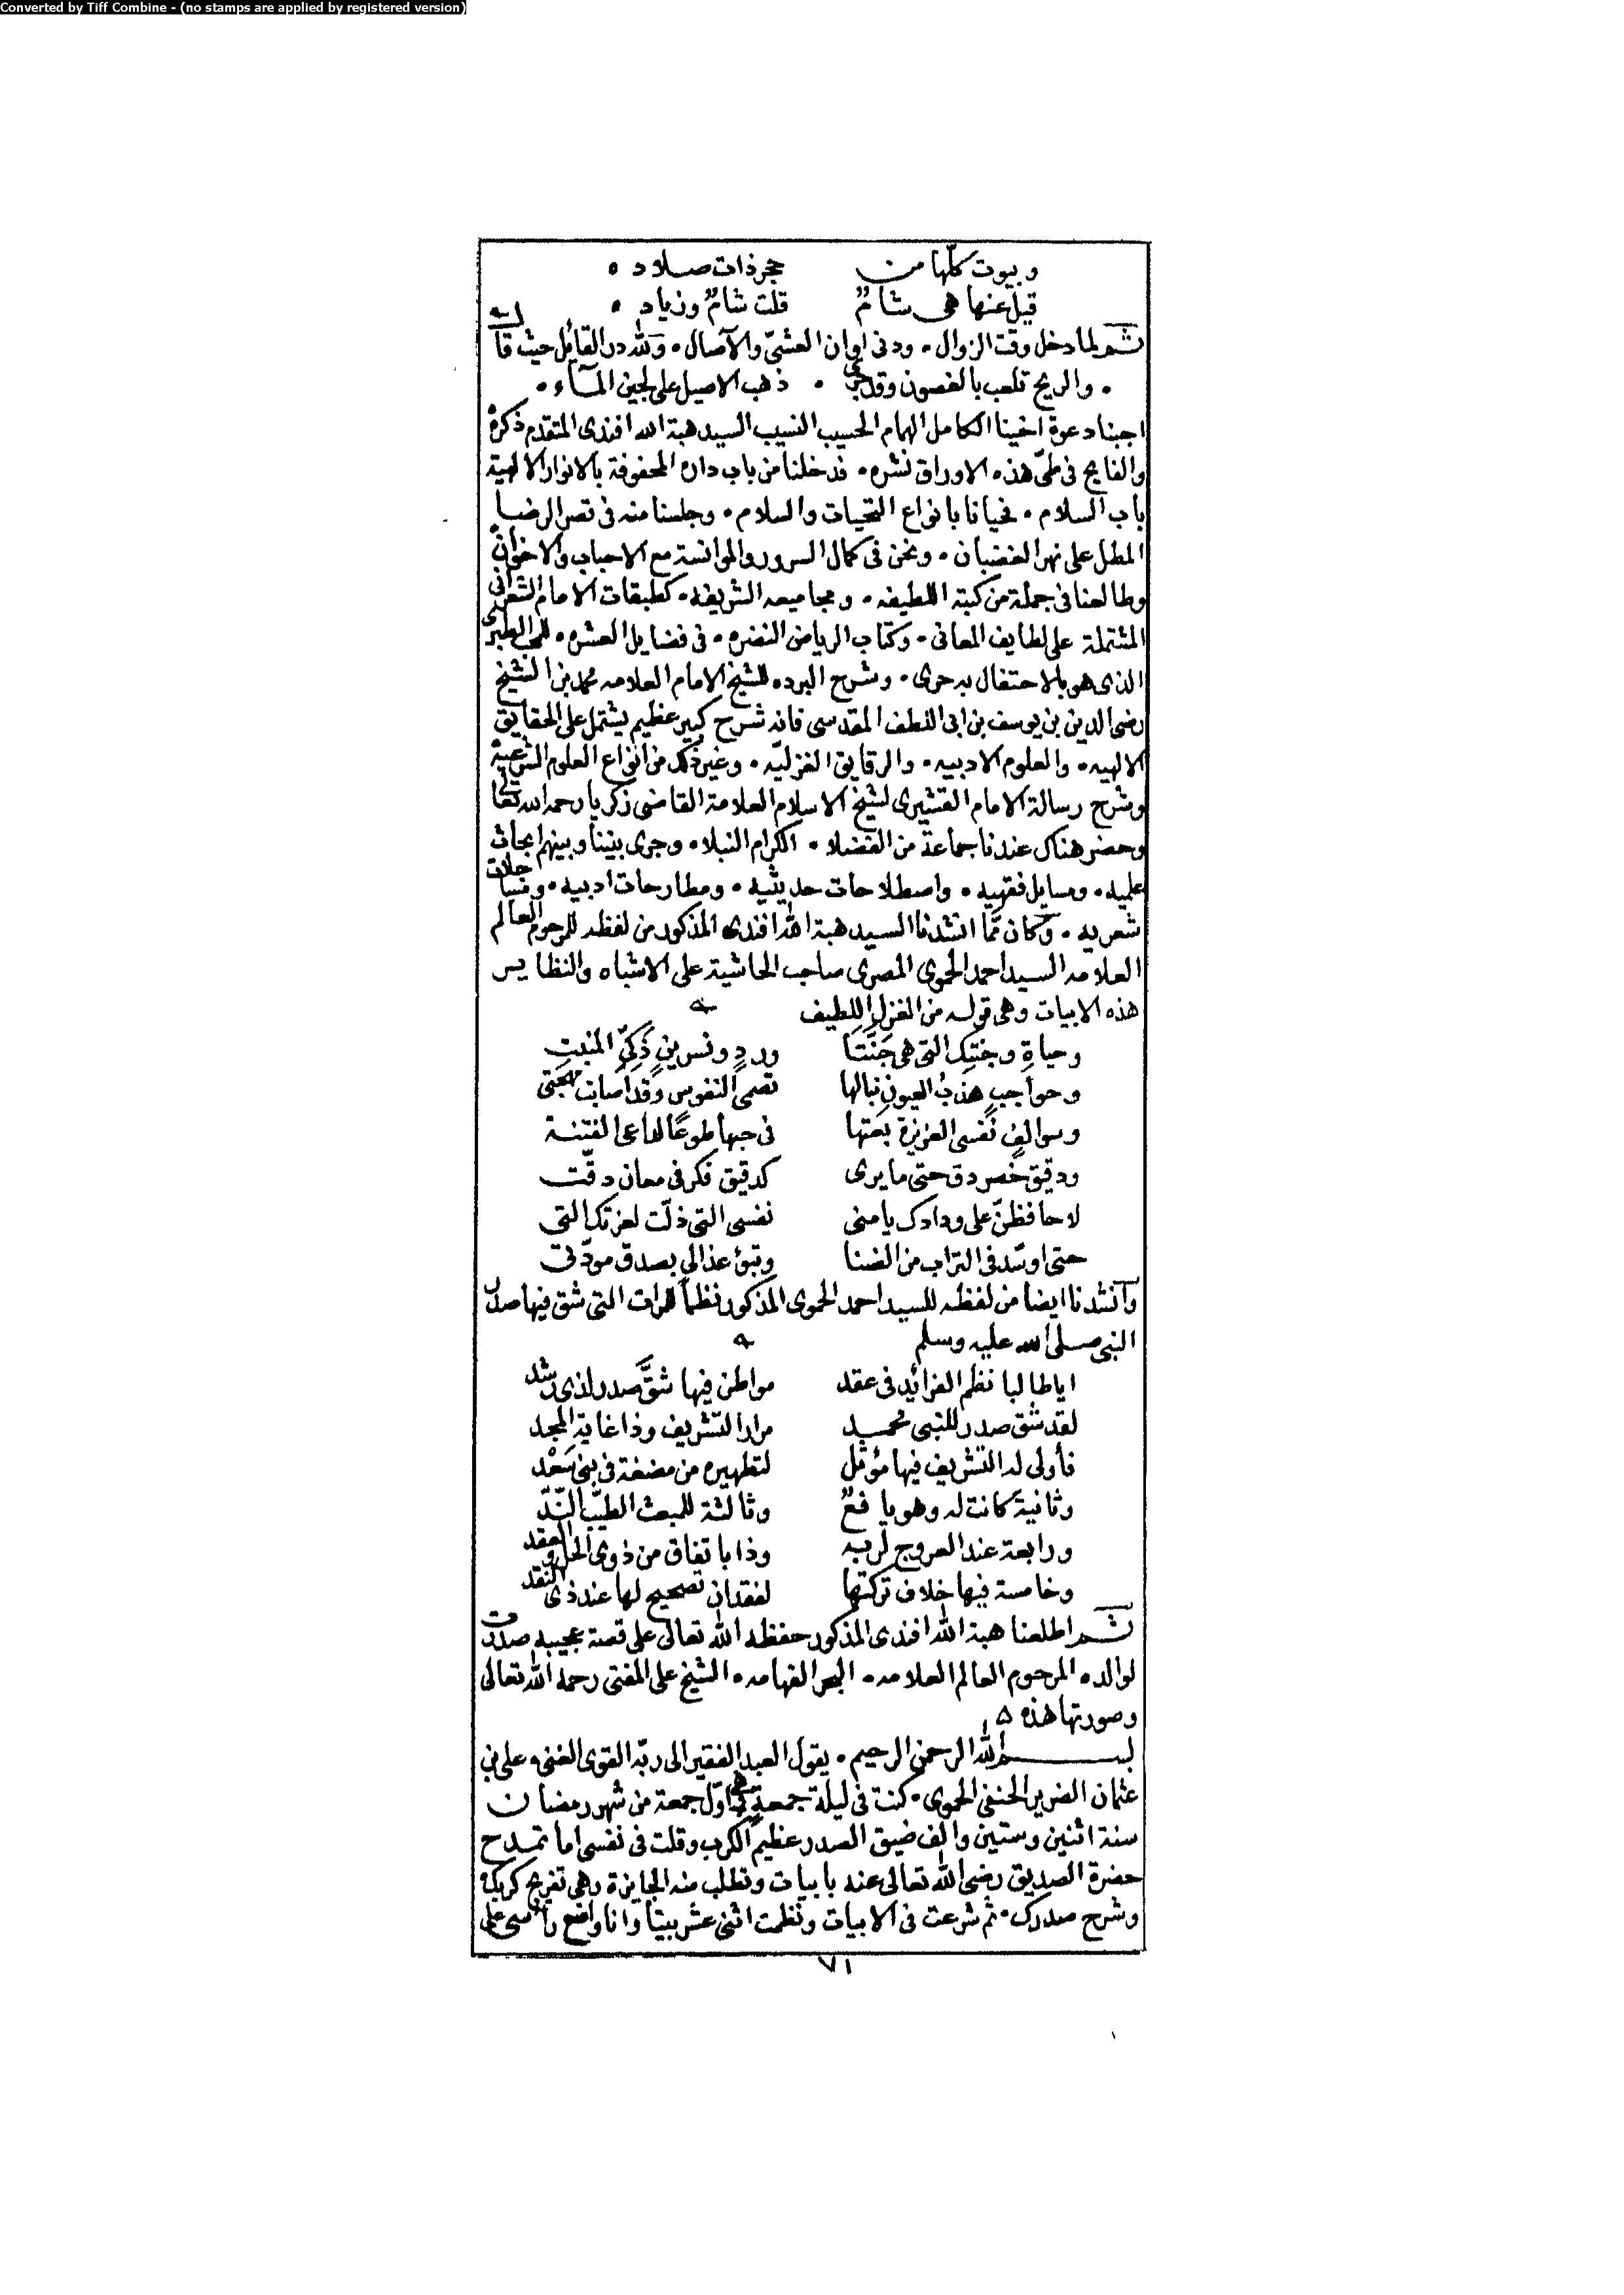 Converted by Tiff Combine - (no stamps are applied by registered version)
وبيوت كلّها من حجر ذات صلاد
قيل عنها هى شامٌ قلت شامٌ وزياد
ثم لما دخل وقت الزوال ودنى اوان العشىّ والآصال ولله در القائل حيث قال
والريح تلعب بالغصون وقد جرى ذهب الاصيل على لجين المآء
اجبنا دعوة اخينا الكامل الهمام الحسيب النسيب السيد هبة الله افندى المتقدم ذكره
والفايح فى طىّ هذه الاوراق نشره فدخلنا من باب داره المحفوفة بالانوار الالهية
باب السلام فحيانا بانواع التحيات والسلام وجلسنا منه فى قصر الرضا
المطل على نهر الغضبان ونحن فى كمال السرور والموانسة مع الاحباب والاخوان
وطالعنا فى جملة من كتبه اللطيفه ومجاميعه الشريفه كطبقات الامام الشعرانى
المشتملة على لطايف المعانى وكتاب الرياض النضره فى فضايل العشره للمحب الطبرى
الذى هو بالاحتفال به حرى وشرح البرده للشيخ الامام العلامه محمد بن الشيخ
رضى الدين بن يوسف بن ابى اللطف المقدسى فانه شرح كبير عظيم يشتمل على الحقايق
الالهيه والعلوم الادبيه والرقايق الغزليّه وغير ذلك من انواع العلوم الشرعية
وشرح رسالة الامام القشيرى لشيخ الاسلام العلامة القاضى زكريا رحمه الله تعالى
وحضر هناك عندنا جماعة من الفضلا الكرام النبلا وجرى بيننا وبينهم ابحاث
علميه ومسايل فقهيه واصطلاحات حديثيه ومطارحات ادبيه ومساجلات
شعريه وكان ممّا انشدنا السيد هبة الله افندى المذكور من لفظه للمرحوم العالم
العلامه السيد احمد الحموى المصرى صاحب الحاشية على الاشباه والنظاير
هذه الابيات وهى قوله من الغزل اللطيف
وحياةِ وجنتِك التى هى جَنَّتَا وردٍ ونسرينٍ ذَكِىّ المنبتِ
وحواجبٍ هدبُ العيونِ نبالها تصمى النفوس وقد اصابت مهجتى
وسوالفٍ نفسى العزيزة بعتها فى حبها طوعًا لداعى الفتنة
ودقيق خصر دق حتى ما يرى كدقيق فكر فى معان دقّت
لاحافظنّ على ودادك يا منى نفسى التى ذلّت لعزتك التى
حتى اوسّد فى التراب من الضنا وتبؤ عذالى بصدق مودّتى
وانشدنا ايضا من لفظه للسيد احمد الحموى المذكور نظماً للمرات التى شق فيها صدر
النبى صلى الله عليه وسلم
ايا طالبا نظم الفرائد فى عقد مواطن فيها شقَّ صدر لذى رشد
لقد شق صدر للنبى محمد مرارا لتشريف وذا غاية المجد
فأولى له التشريف فيها مؤثل لتطهيره من مضغة فى بنى سَعْد
وثانيةً كانت له وهو يافعٌ وثالثة للمبعث الطيّب النّدّ
ورابعة عند العروج لربه وذا باتفاق من ذوى الحل والعقد
وخامسة فيها خلاف تركتها لفقدان تصحيح لها عند ذى النقد
ثم اطلعنا هبة الله افندى المذكور حفظه الله تعالى على قصة عجيبه صدرت
لوالده المرحوم العالم العلامه البحر الفهامه الشيخ على المفتى رحمه الله تعالى
وصورتها هذه
بسم الله الرحمن الرحيم يقول العبد الفقير الى ربّه القوى الغنى على بن
عثمان الضرير الحنفى الحموى كنت فى ليلة جمعةٍ هى اوّل جمعة من شهر رمضان
سنة اثنين وستين والف ضيق الصدر عظيم الكرب وقلت فى نفسى اما تمدح
حضرة الصديق رضى الله تعالى عنه بابيات وتطلب منه الجايزة وهى تفريج كربك
وشرح صدرك ثم شرعت فى الابيات ونظمت اثنى عشر بيتا وانا واضع رأسى على
٧١